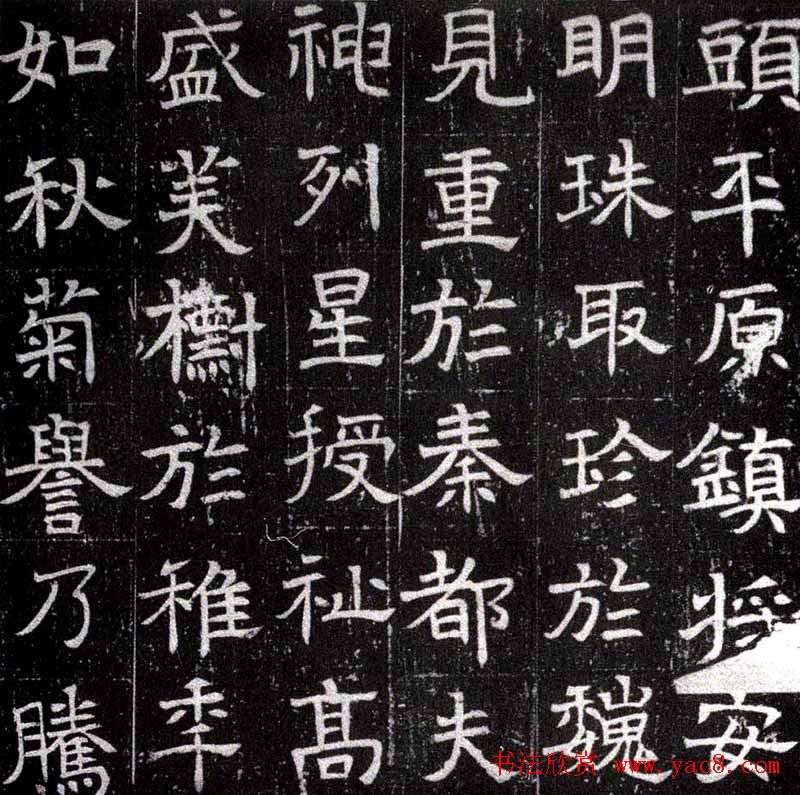 頭平原鎮将安
明珠取珍於魏
見重於秦都夫
神列星授祉高
盛美欝於稚年
如秋菊譽乃騰
书法欣赏 www.yac8.com